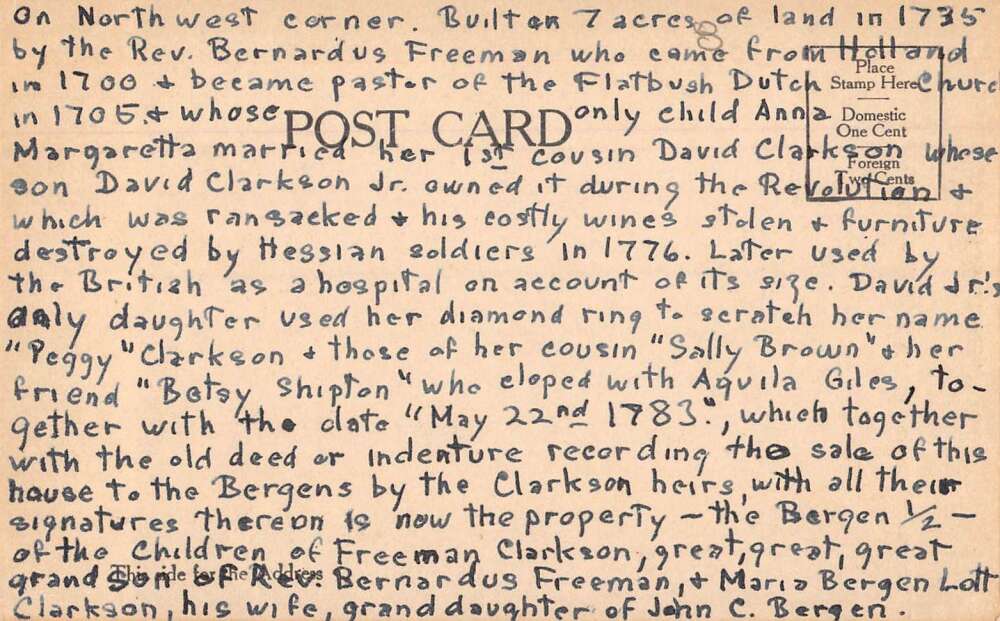 On North west corner. Built on 7 acres of land in 1735
by the Rev. Bernardus Freeman who came from Holland
in 1700 + became pastor of the Flatbush Dutch Churc
in 1705 + whose only child Anna
Margaretta married her 1st cousin David Clarkson whose
son David Clarkson Jr. owned it during the Revolution +
which was ransacked + his costly wines stolen + furniture
destroyed by Hessian soldiers in 1776. Later used by
the British as a hospital on account of its size. David Jr.'s
only daughter used her diamond ring to scratch her name
"Peggy" Clarkson + those of her cousin "Sally Brown" + her
friend "Betsy Shipton" who eloped with Aquila Giles, to-
gether with the date "May 22nd 1783.", which together
with the old deed or indenture recording the sale of this
house to the Bergens by the Clarkson heirs, with all their
signatures thereon is now the property – the Bergen 1/2 –
of the Children of Freeman Clarkson, great, great, great
grand son of Rev. Bernardus Freeman, + Maria Bergen Lott
Clarkson, his wife, grand daughter of John C. Bergen.
POST CARD
Place
Stamp Here
Domestic
One Cent
Foreign
Two Cents
This side for the Address